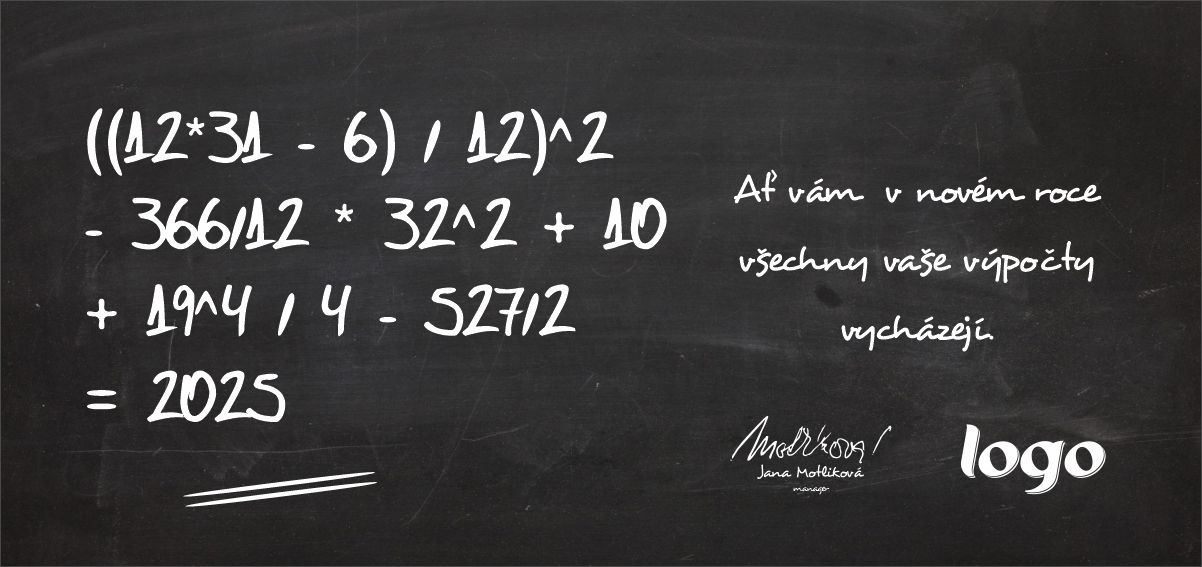 ((12*31 - 6) / 12)^2
- 366/12 * 32^2 + 10
+ 19^4 / 4 - 527/2
= 2025
Ať vám v novém roce
všechny vaše výpočty
vycházejí.
Motlíková
Jana Motlíková
manager
logo